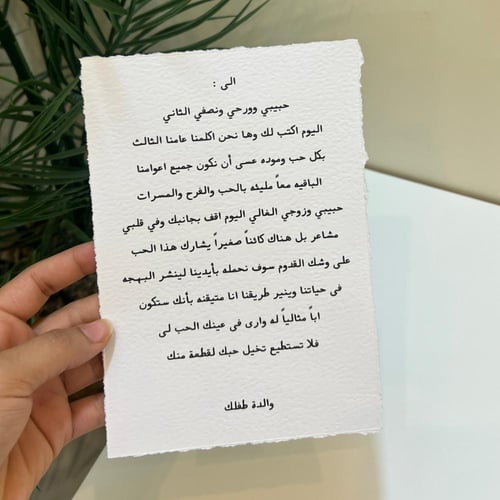 الى :
حبيبي وورحي ونصفي الثاني
اليوم اكتب لك وها نحن اكلمنا عامنا الثالث
بكل حب وموده عسى أن نكون جميع اعوامنا
الباقيه معاً مليئه بالحب والفرح والمسرات
حبيبي وزوجي الغالي اليوم اقف بجانبك وفي قلبي
مشاعر بل هناك كائناً صغيراً يشارك هذا الحب
على وشك القدوم سوف نحمله بأيدينا لينشر البهجه
فى حياتنا وينير طريقنا انا متيقنه بأنك ستكون
اباً مثالياً له وارى فى عينك الحب لى
فلا تستطيع تخيل حبك لقطعة منك
والدة طفلك